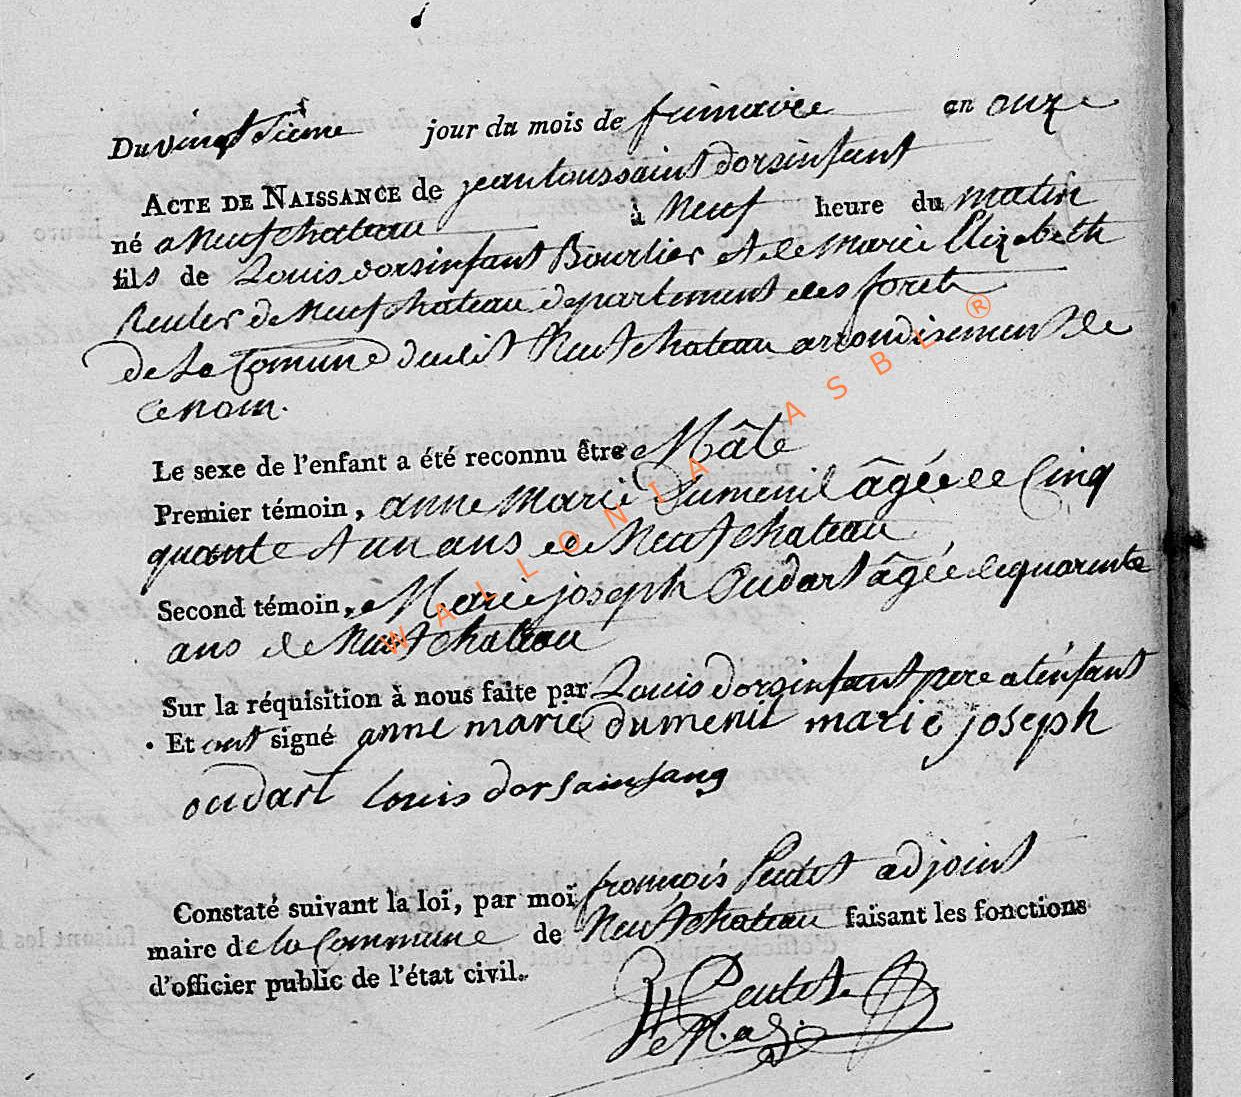 Du vingt Sieme jour du mois de frimaire an onze
ACTE DE NAISSANCE de jean toussaint dorsinfant
né a Neufchateau à Neuf heure du matin
fils de Louis dorsinfant Bourlier et de Marie Elizabeth
de Neufchateau departement des foret
de la Comune dudit Neufchateau arrondisement de
ce nom.
Le sexe de l'enfant a été reconnu être Mâle
Premier témoin, anne Marie Dumenil âgée de Cinq
quante et un ans de Neufchateau
Second témoin, Marie joseph Oudart âgée de quarente
ans de Neufchateau
Sur la réquisition à nous faite par Louis dorsinfant pere a lenfant
Et ont signé anne marie dumenil marie joseph
oudart louis dorsainfang
Constaté suivant la loi, par moi françois Peutet adjoint
maire de la Commune de Neufchateau faisant les fonctions
d'officier public de l'état civil.
Peutet
WALLONIA ASBL ®